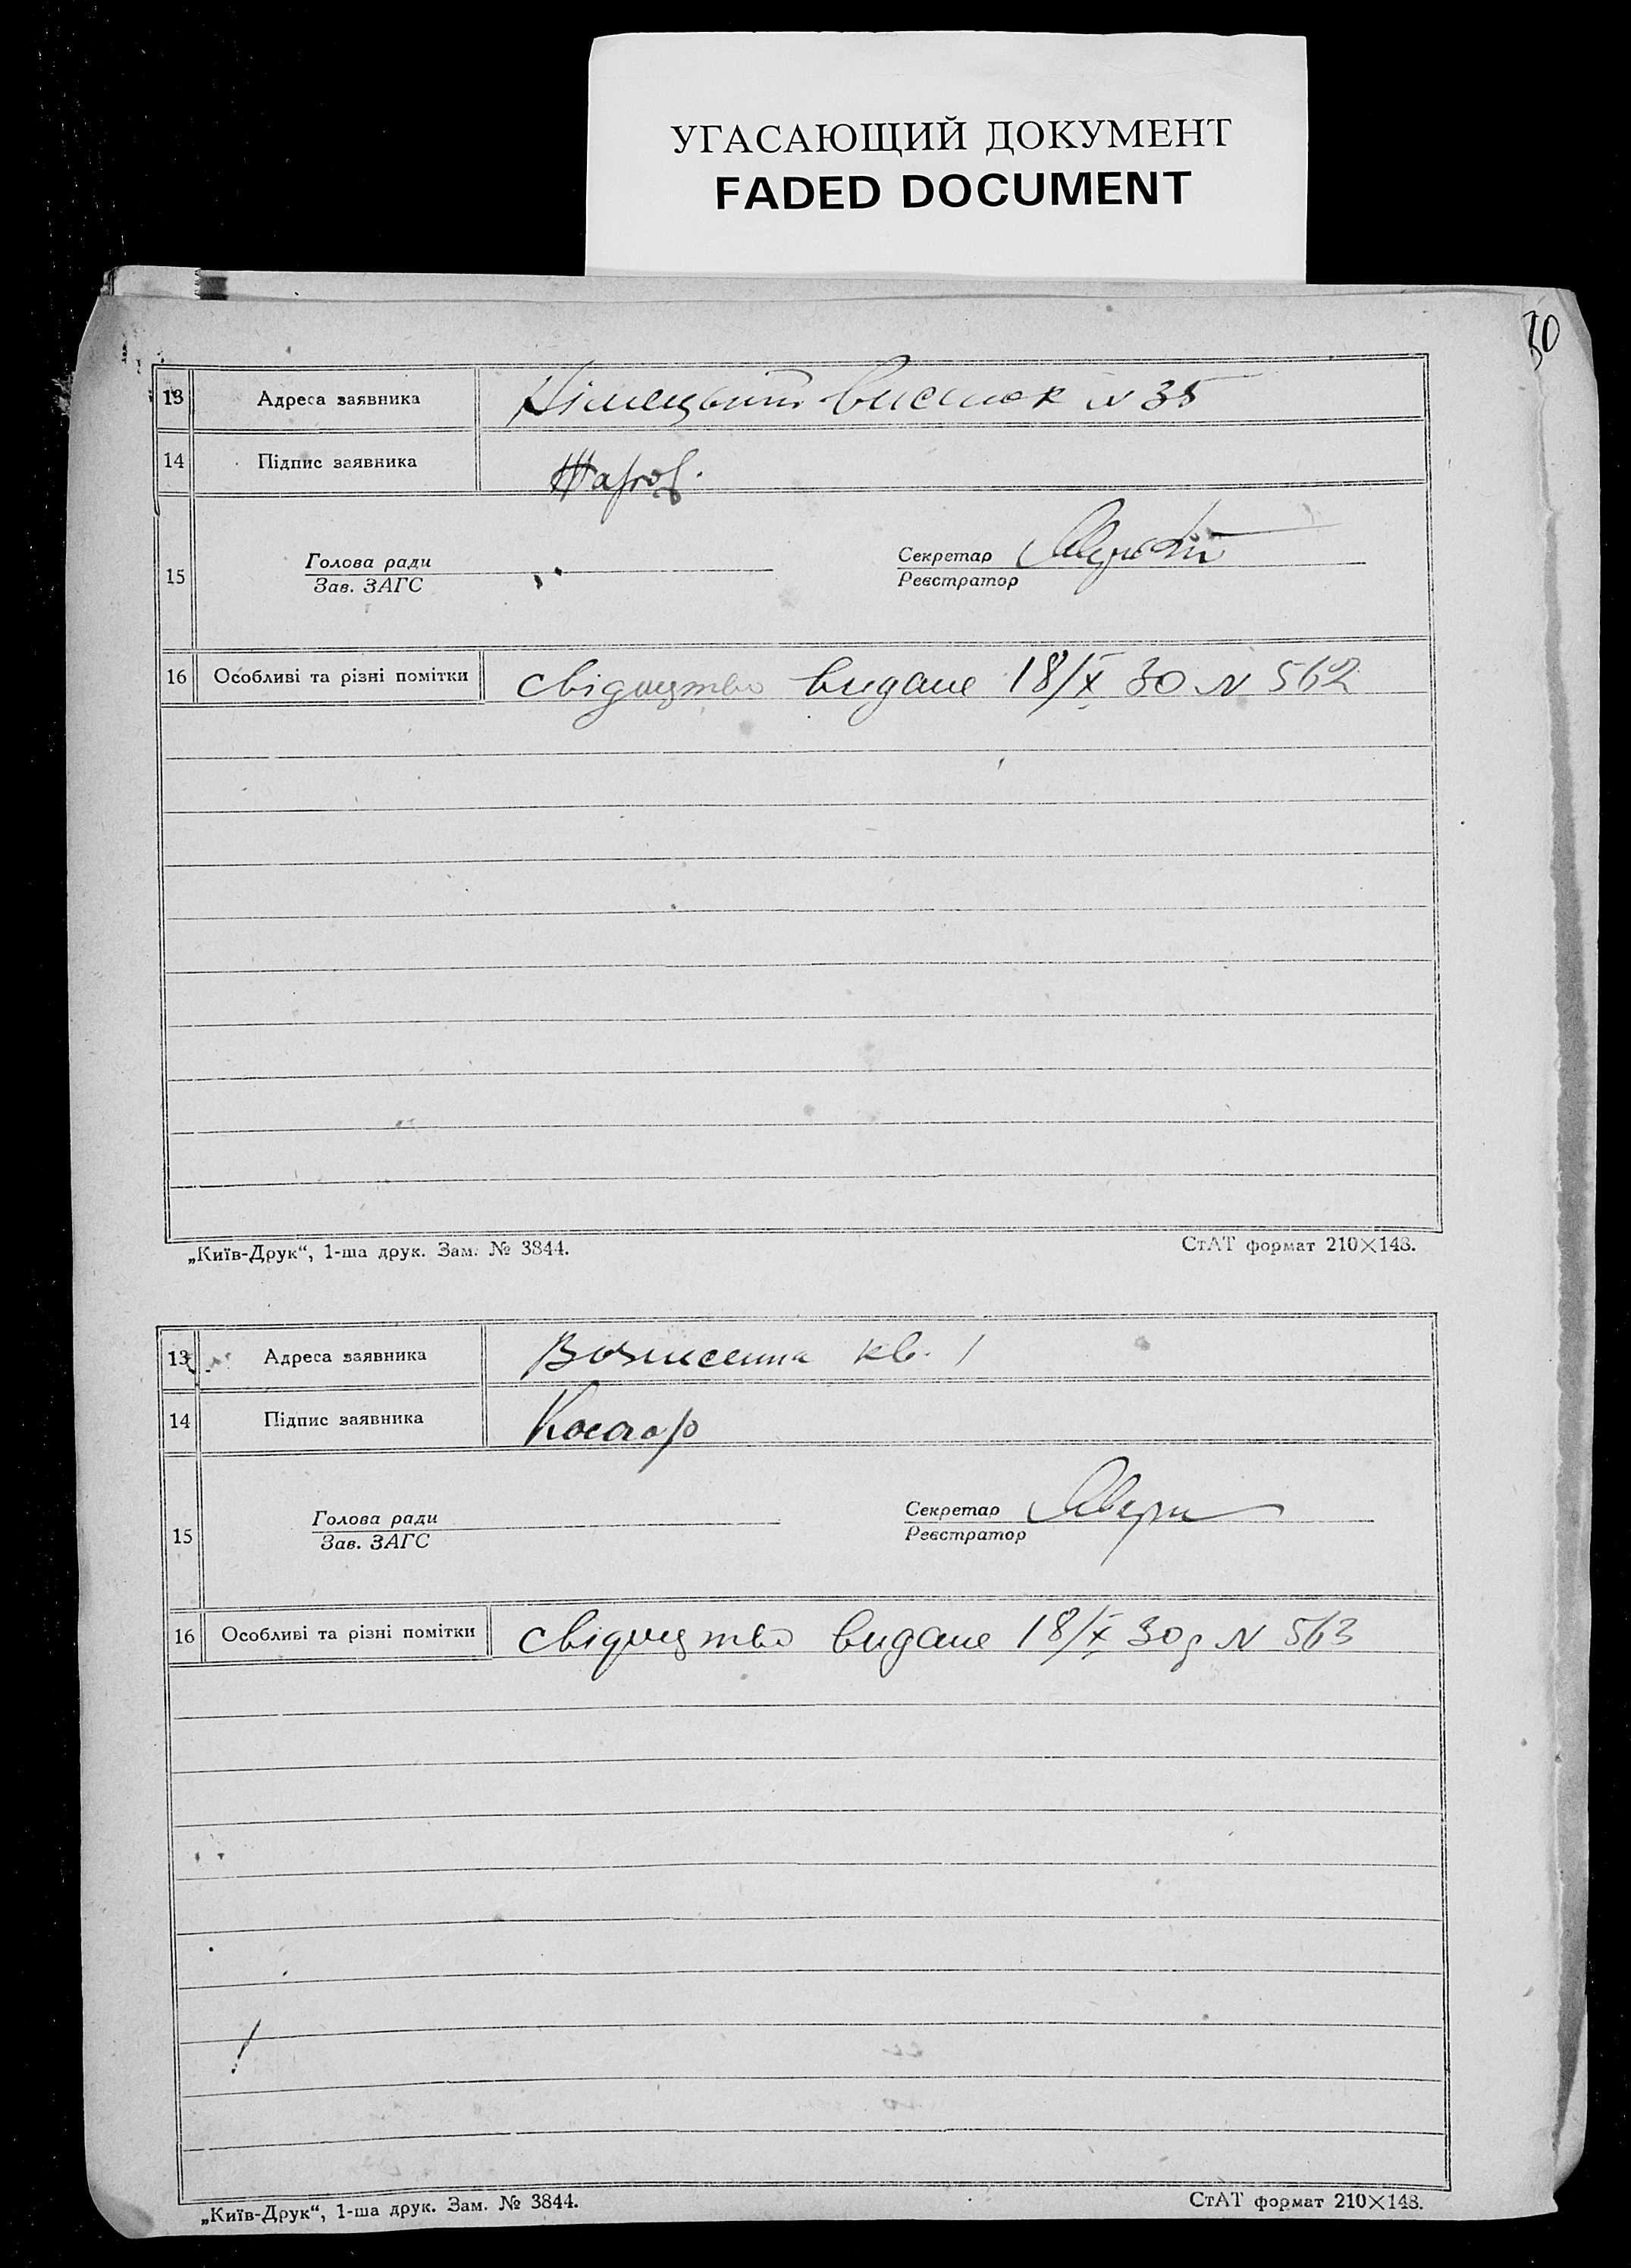 УГАСАЮЩИЙ ДОКУМЕНТ
FADED DOCUMENT
30
13 Адреса заявника Німецький висилок N 35
14 Підпис заявника Жаров.
15 Голова ради Секретар
Зав. ЗАГС Реєстратор
16 Особливі та різні помітки свідоцтво видане 18/IX 30 N 562
„Київ-Друк“, 1-ша друк. Зам. № 3844. СтАТ формат 210×148.
13 Адреса заявника кв. 1
14 Підпис заявника Косаар
15 Голова ради Секретар
Зав. ЗАГС Реєстратор
16 Особливі та різні помітки свідоцтво видане 18/IX 30р N 563
„Київ-Друк“, 1-ша друк. Зам. № 3844. СтАТ формат 210×148.